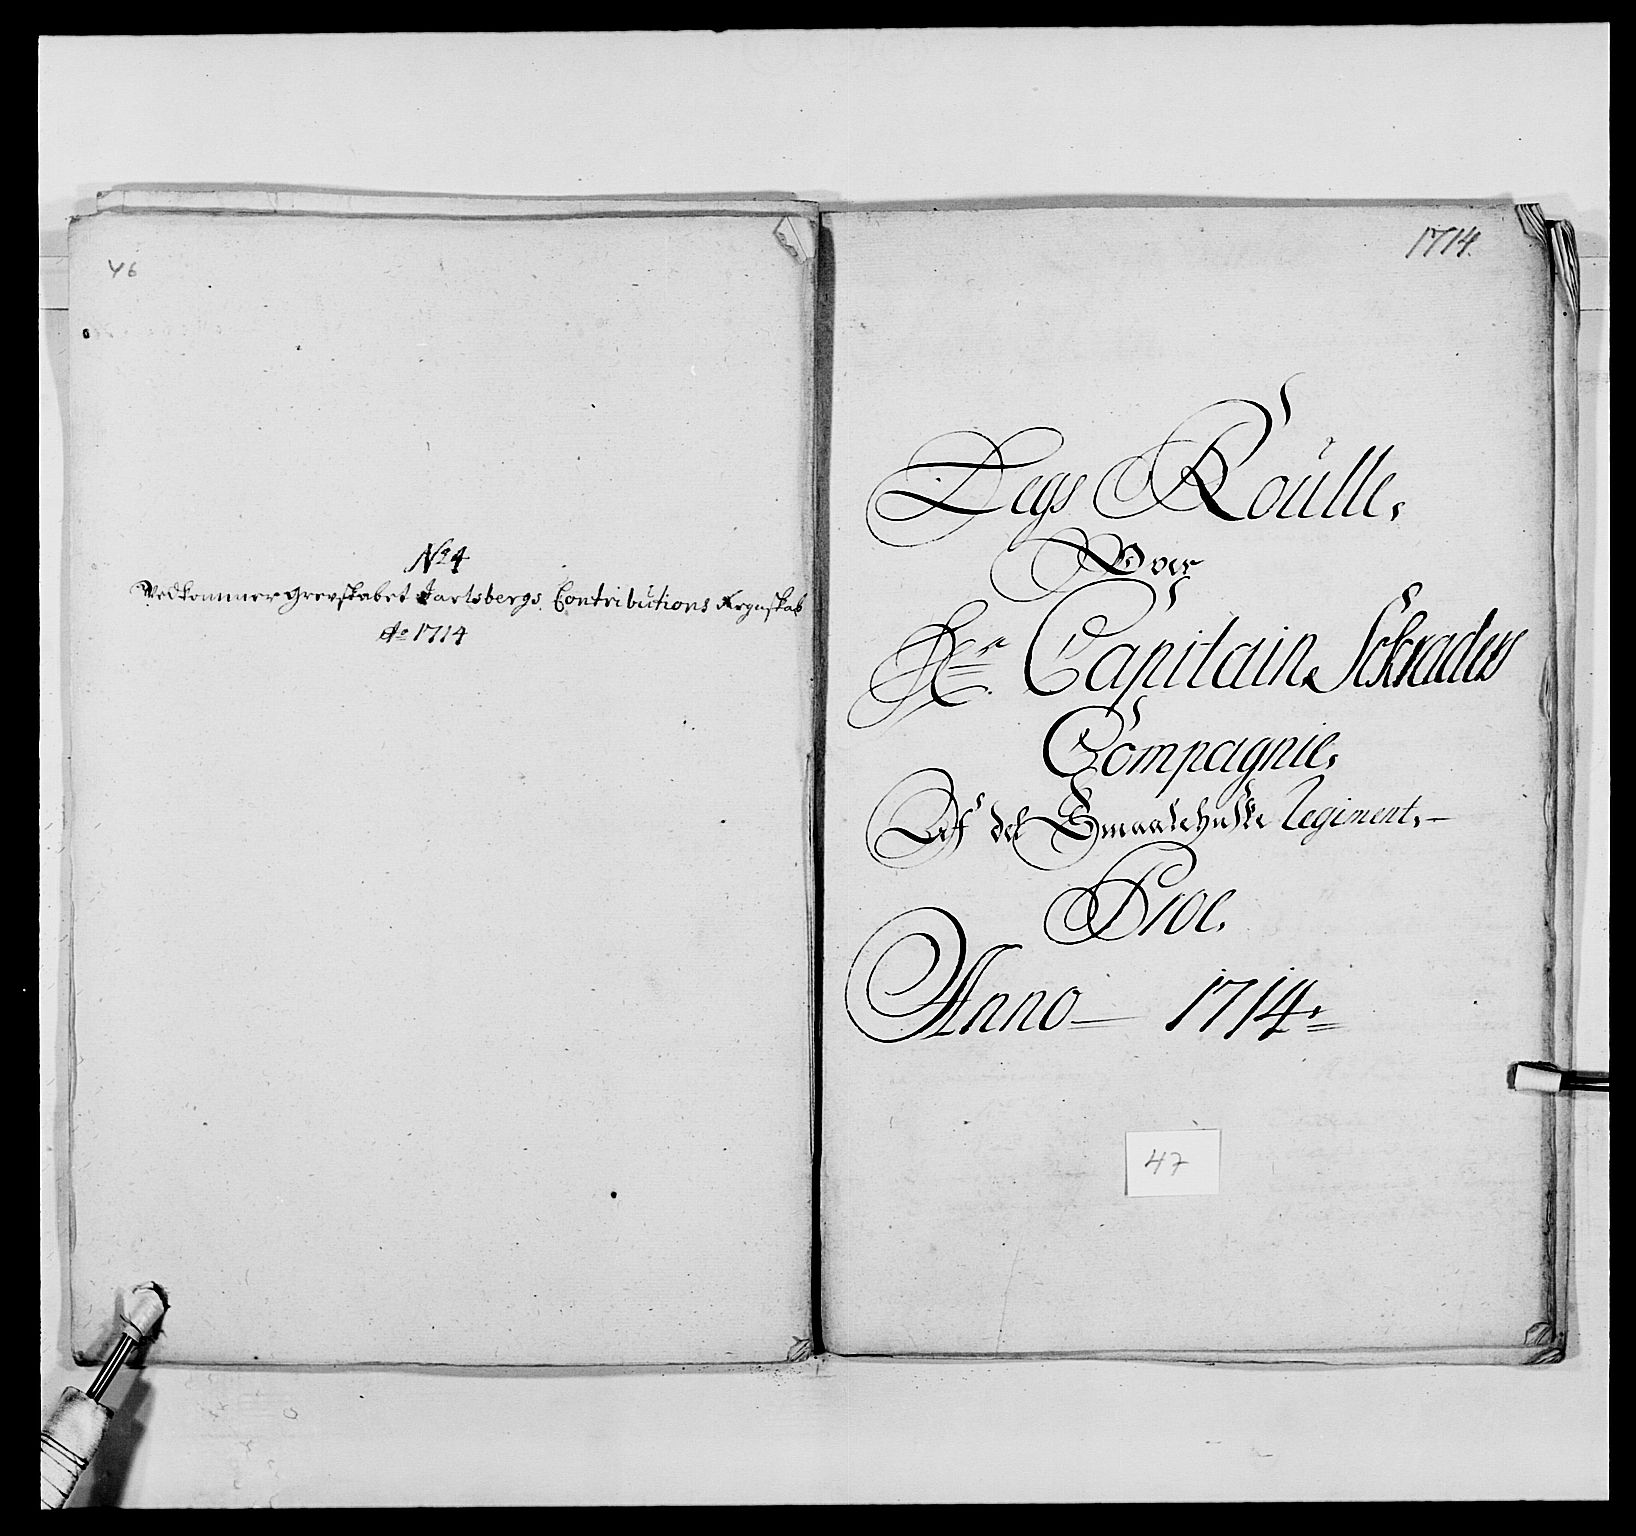 46
No 4
Vedkommer Grevskabet Jarlsbergs Contributions Regnskab
Ao 1714
1714.
Legs Roulle,
Over
Hr Capitain Schraders
Compagnie,
Af det Smaalehnske Regiment,
Proe,
Anno 1714
47